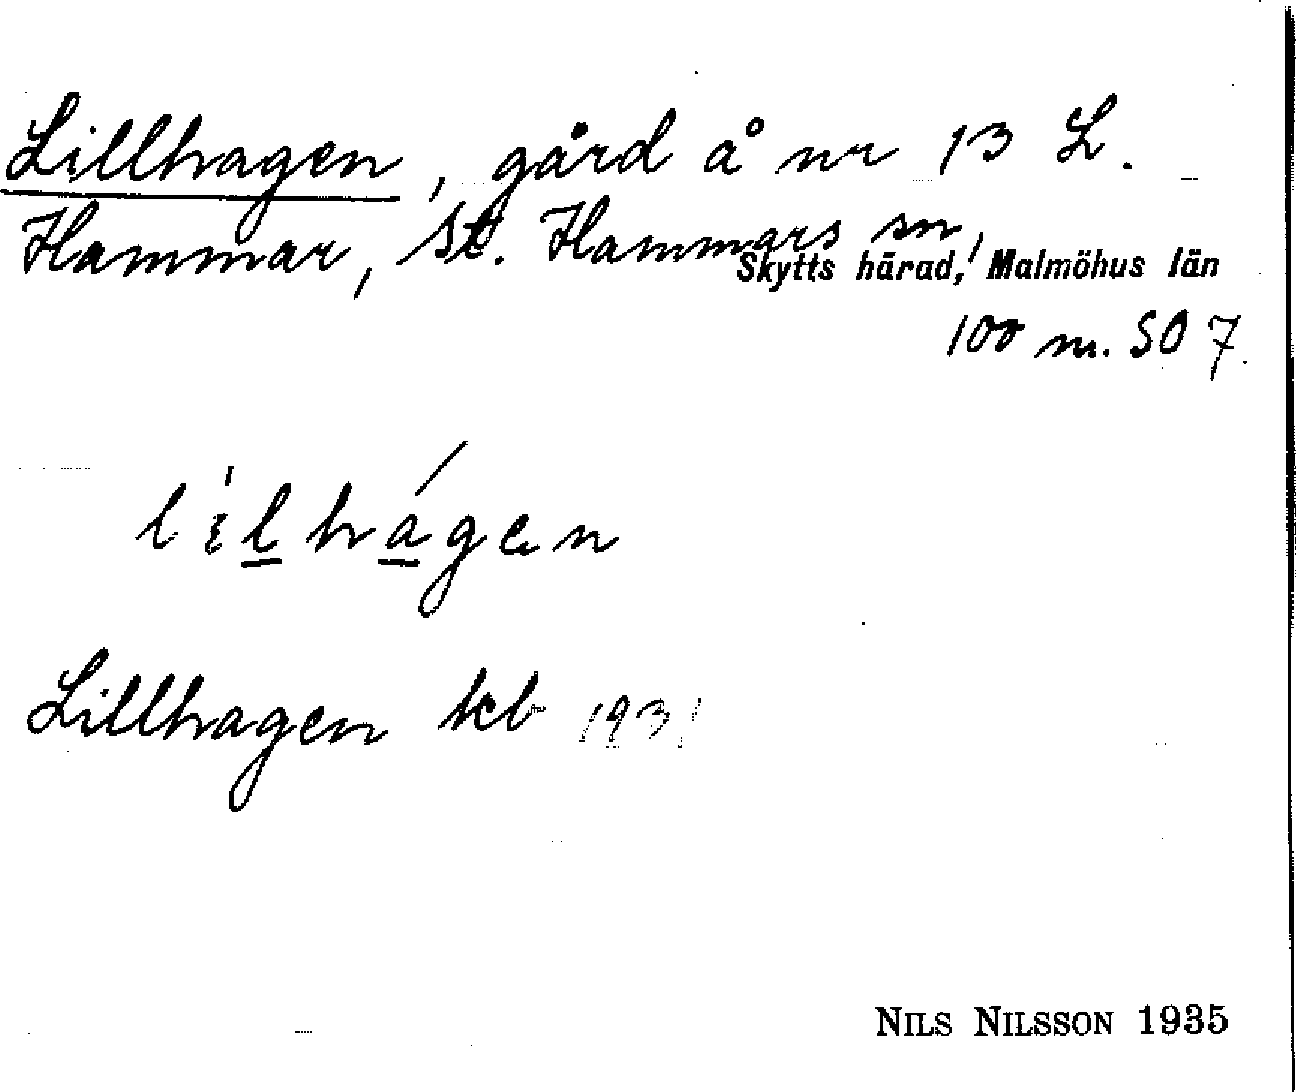 Lillhagen, gård å nr 13 L.
Hammar, St. Hammars sn,
Skytts härad, Malmöhus län
100 m. SO 7.
lilhágen
Lillhagen kb 1931
NILS NILSSON 1935